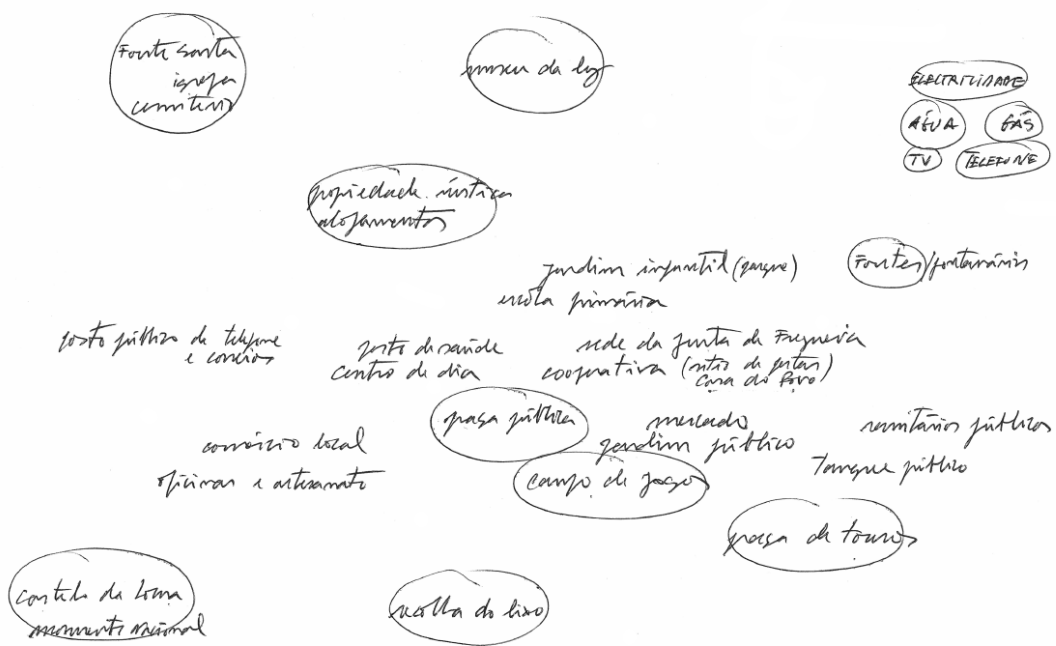 Fonte Santa
igreja
cemitério
museu da luz
ELECTRICIDADE
ÁGUA
GÁS
TV
TELEFONE
propiedade rústica
alojamentos
jardim infantil (parque)
escola primária
Fontes/fontanários
posto público de telefone
e correios
posto de saúde
centro de dia
sede da junta de Freguesia
cooperativa (sítio de festas)
Casa do Povo
praça pública
mercado
jardim público
sanitários públicos
Tanque público
comércio local
oficinas e artesanato
campo de jogos
praça de touros
castelo da Lousa
monumento Nacional
recolha do lixo